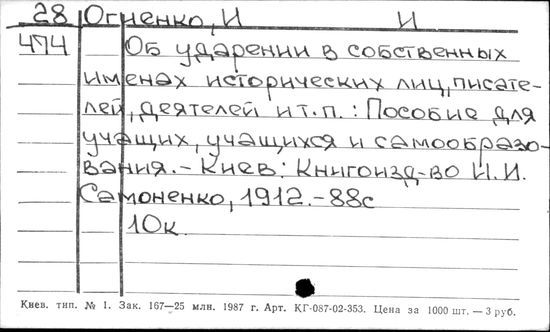 28 Огиенко, И И
474 Об ударении в собственных
именах исторических лиц, писате-
лей, деятелей и т.п. : Пособие для
учащих, учащихся и самообразо-
вания. – Киев : Книгоизд-во И.И.
Самоненко, 1912. – 88с
10к.
Киев. тип. № 1. Зак. 167—25 млн. 1987 г. Арт. КГ-087-02-353. Цена за 1000 шт. — 3 руб.